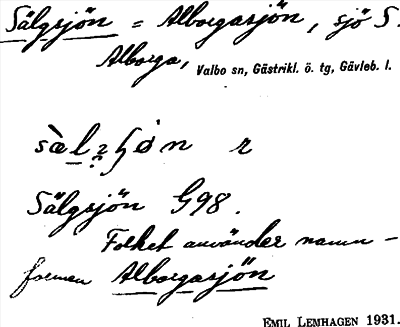 Sälgsjön = Alborgasjön, sjö S.
Alborga, Valbo sn, Gästrikl. ö. tg, Gävleb. l.
Sälgsjön G98.
Folket använder namn-
formen Alborgasjön
EMIL LEMHAGEN 1931.